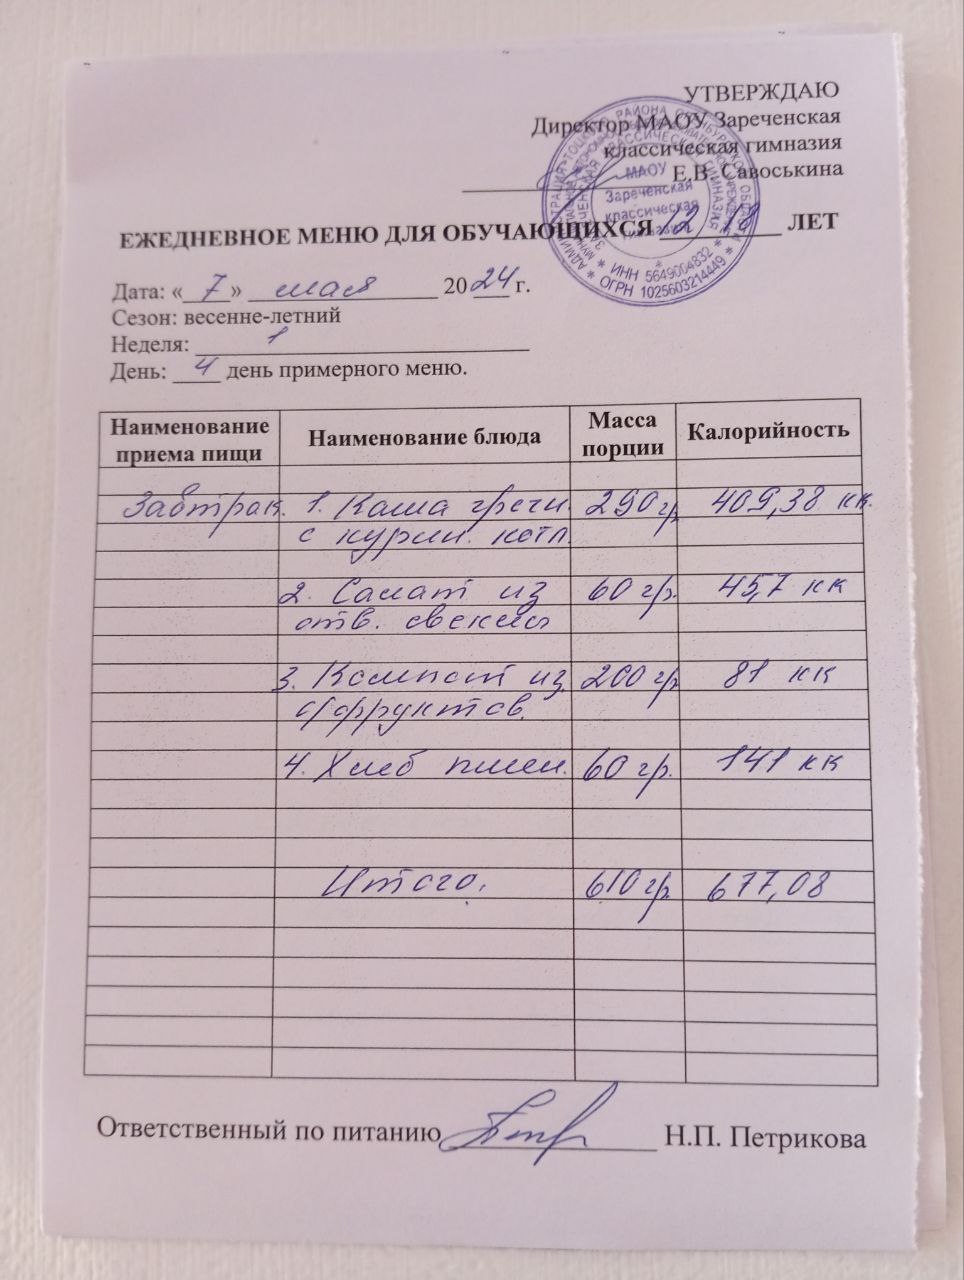 УТВЕРЖДАЮ
Директор МАОУ Зареченская
классическая гимназия
Е.В. Савоськина
МАОУ
Зареченская
классическая
гимназия
* ИНН 5649004832 *
* ОГРН 1025603214449 *
ЕЖЕДНЕВНОЕ МЕНЮ ДЛЯ ОБУЧАЮЩИХСЯ 12-18 ЛЕТ
Дата: «7» мая 2024 г.
Сезон: весенне-летний
Неделя: 1
День: 4 день примерного меню.
Наименование приема пищи Наименование блюда Масса порции Калорийность
Завтрак. 1. Каша гречн. 290 гр. 409,38 кк.
с курин. котл.
2. Салат из 60 гр. 45,7 кк
отв. свеклы
3. Компот из 200 гр 81 кк
с/фруктов.
4. Хлеб пшен. 60 гр. 141 кк
Итого. 610 гр. 677,08
Ответственный по питанию Н.П. Петрикова